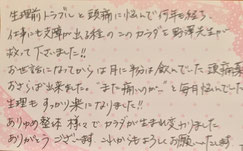 生理前トラブルと頭痛に悩んで何年も経ち、
仕事にも支障が出る程のこのカラダを野澤先生が
救って下さいました!!
お世話になってからは月に半分は飲んでいた頭痛薬
おさらば出来ました。"また痛いのか"と毎月悩んでいた
生理もすっかり楽になりました!!
ありゅめ整体様々でカラダが生まれ変わりました
ありがとうございます これからもよろしくお願いします